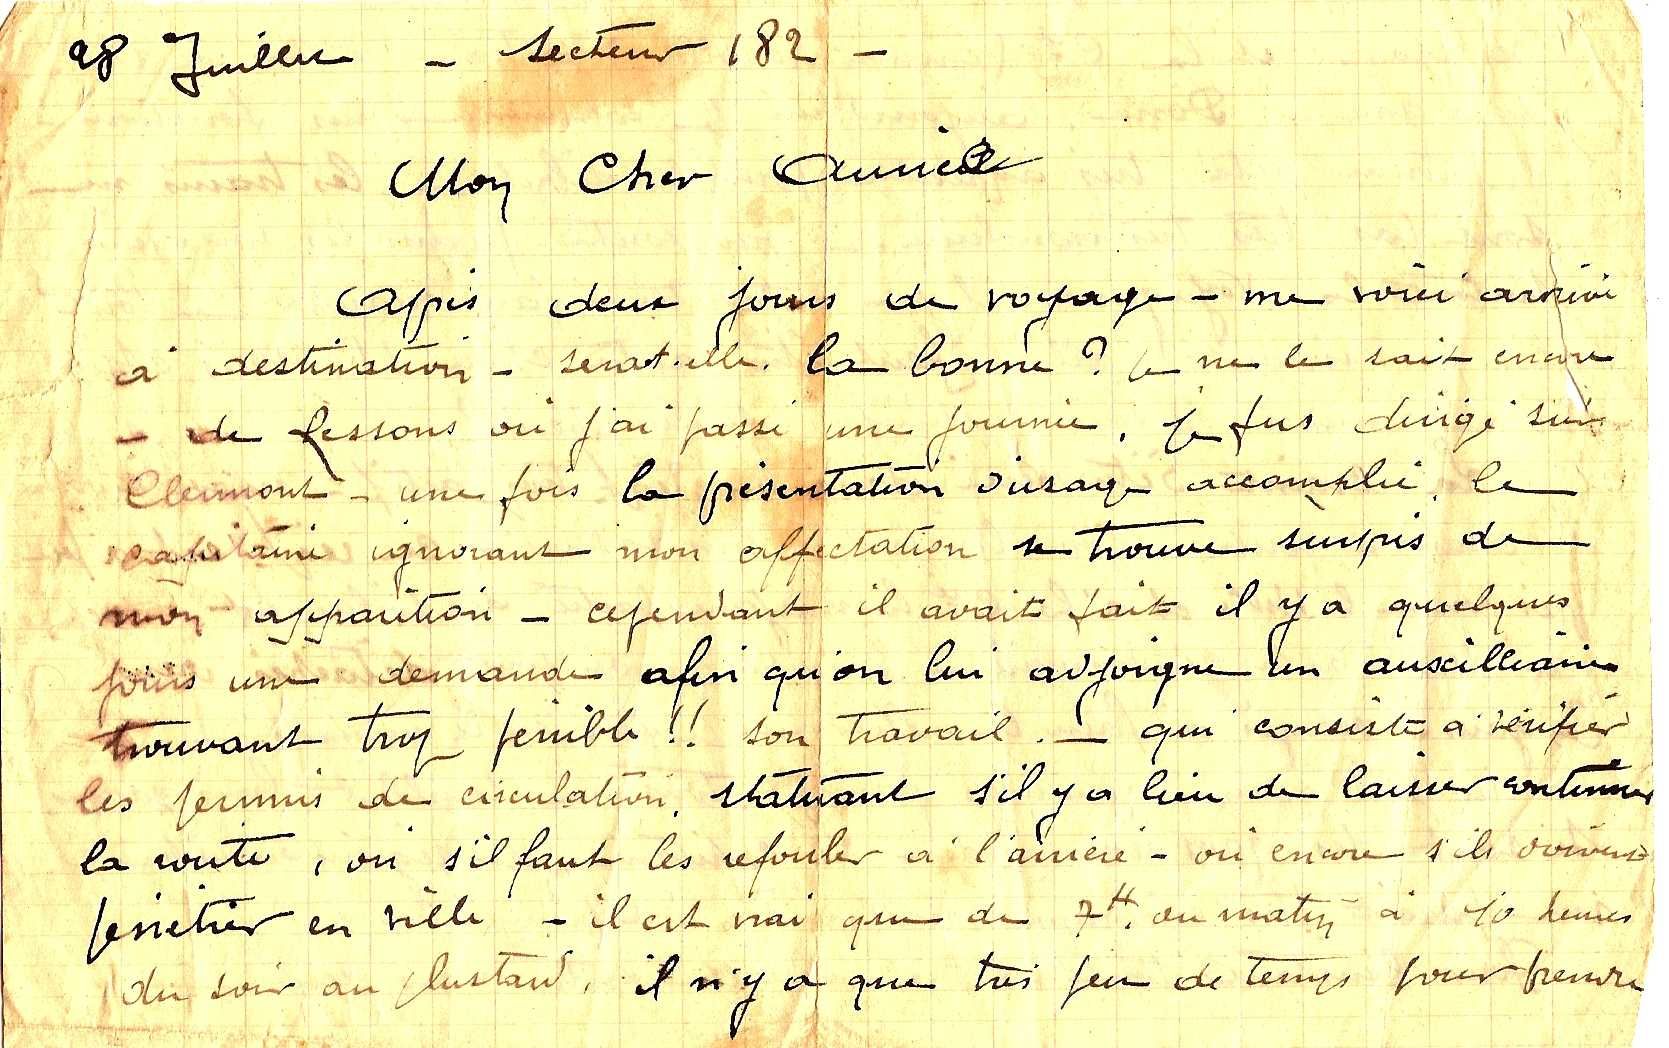 28 Juillet - Secteur 182 -
Mon Cher
Après deux jours de voyage - me voici arrivé
à destination - serat-elle. la bonne ? je ne le sait encore
- de Ressons où j'ai passé une journée, je fus dirigé sur
Clermont - une fois la présentation d'usage accomplie, le
capitaine ignorant mon affectation se trouve surpris de
mon apparition - cependant il avait fait il y a quelques
jours une demande afin qu'on lui adjoigne un auxilliaire
trouvant trop pénible !! son travail. - qui consiste à vérifier
les permis de circulation, statuant s'il y a lieu de laisser continuer
la route, où s'il faut les refouler à l'arrière - où encore s'ils doivent
pénétrer en ville - il est vrai que de 7H. au matin à 10 heures
du soir au plustard, il n'y a que très peu de temps pour prendre